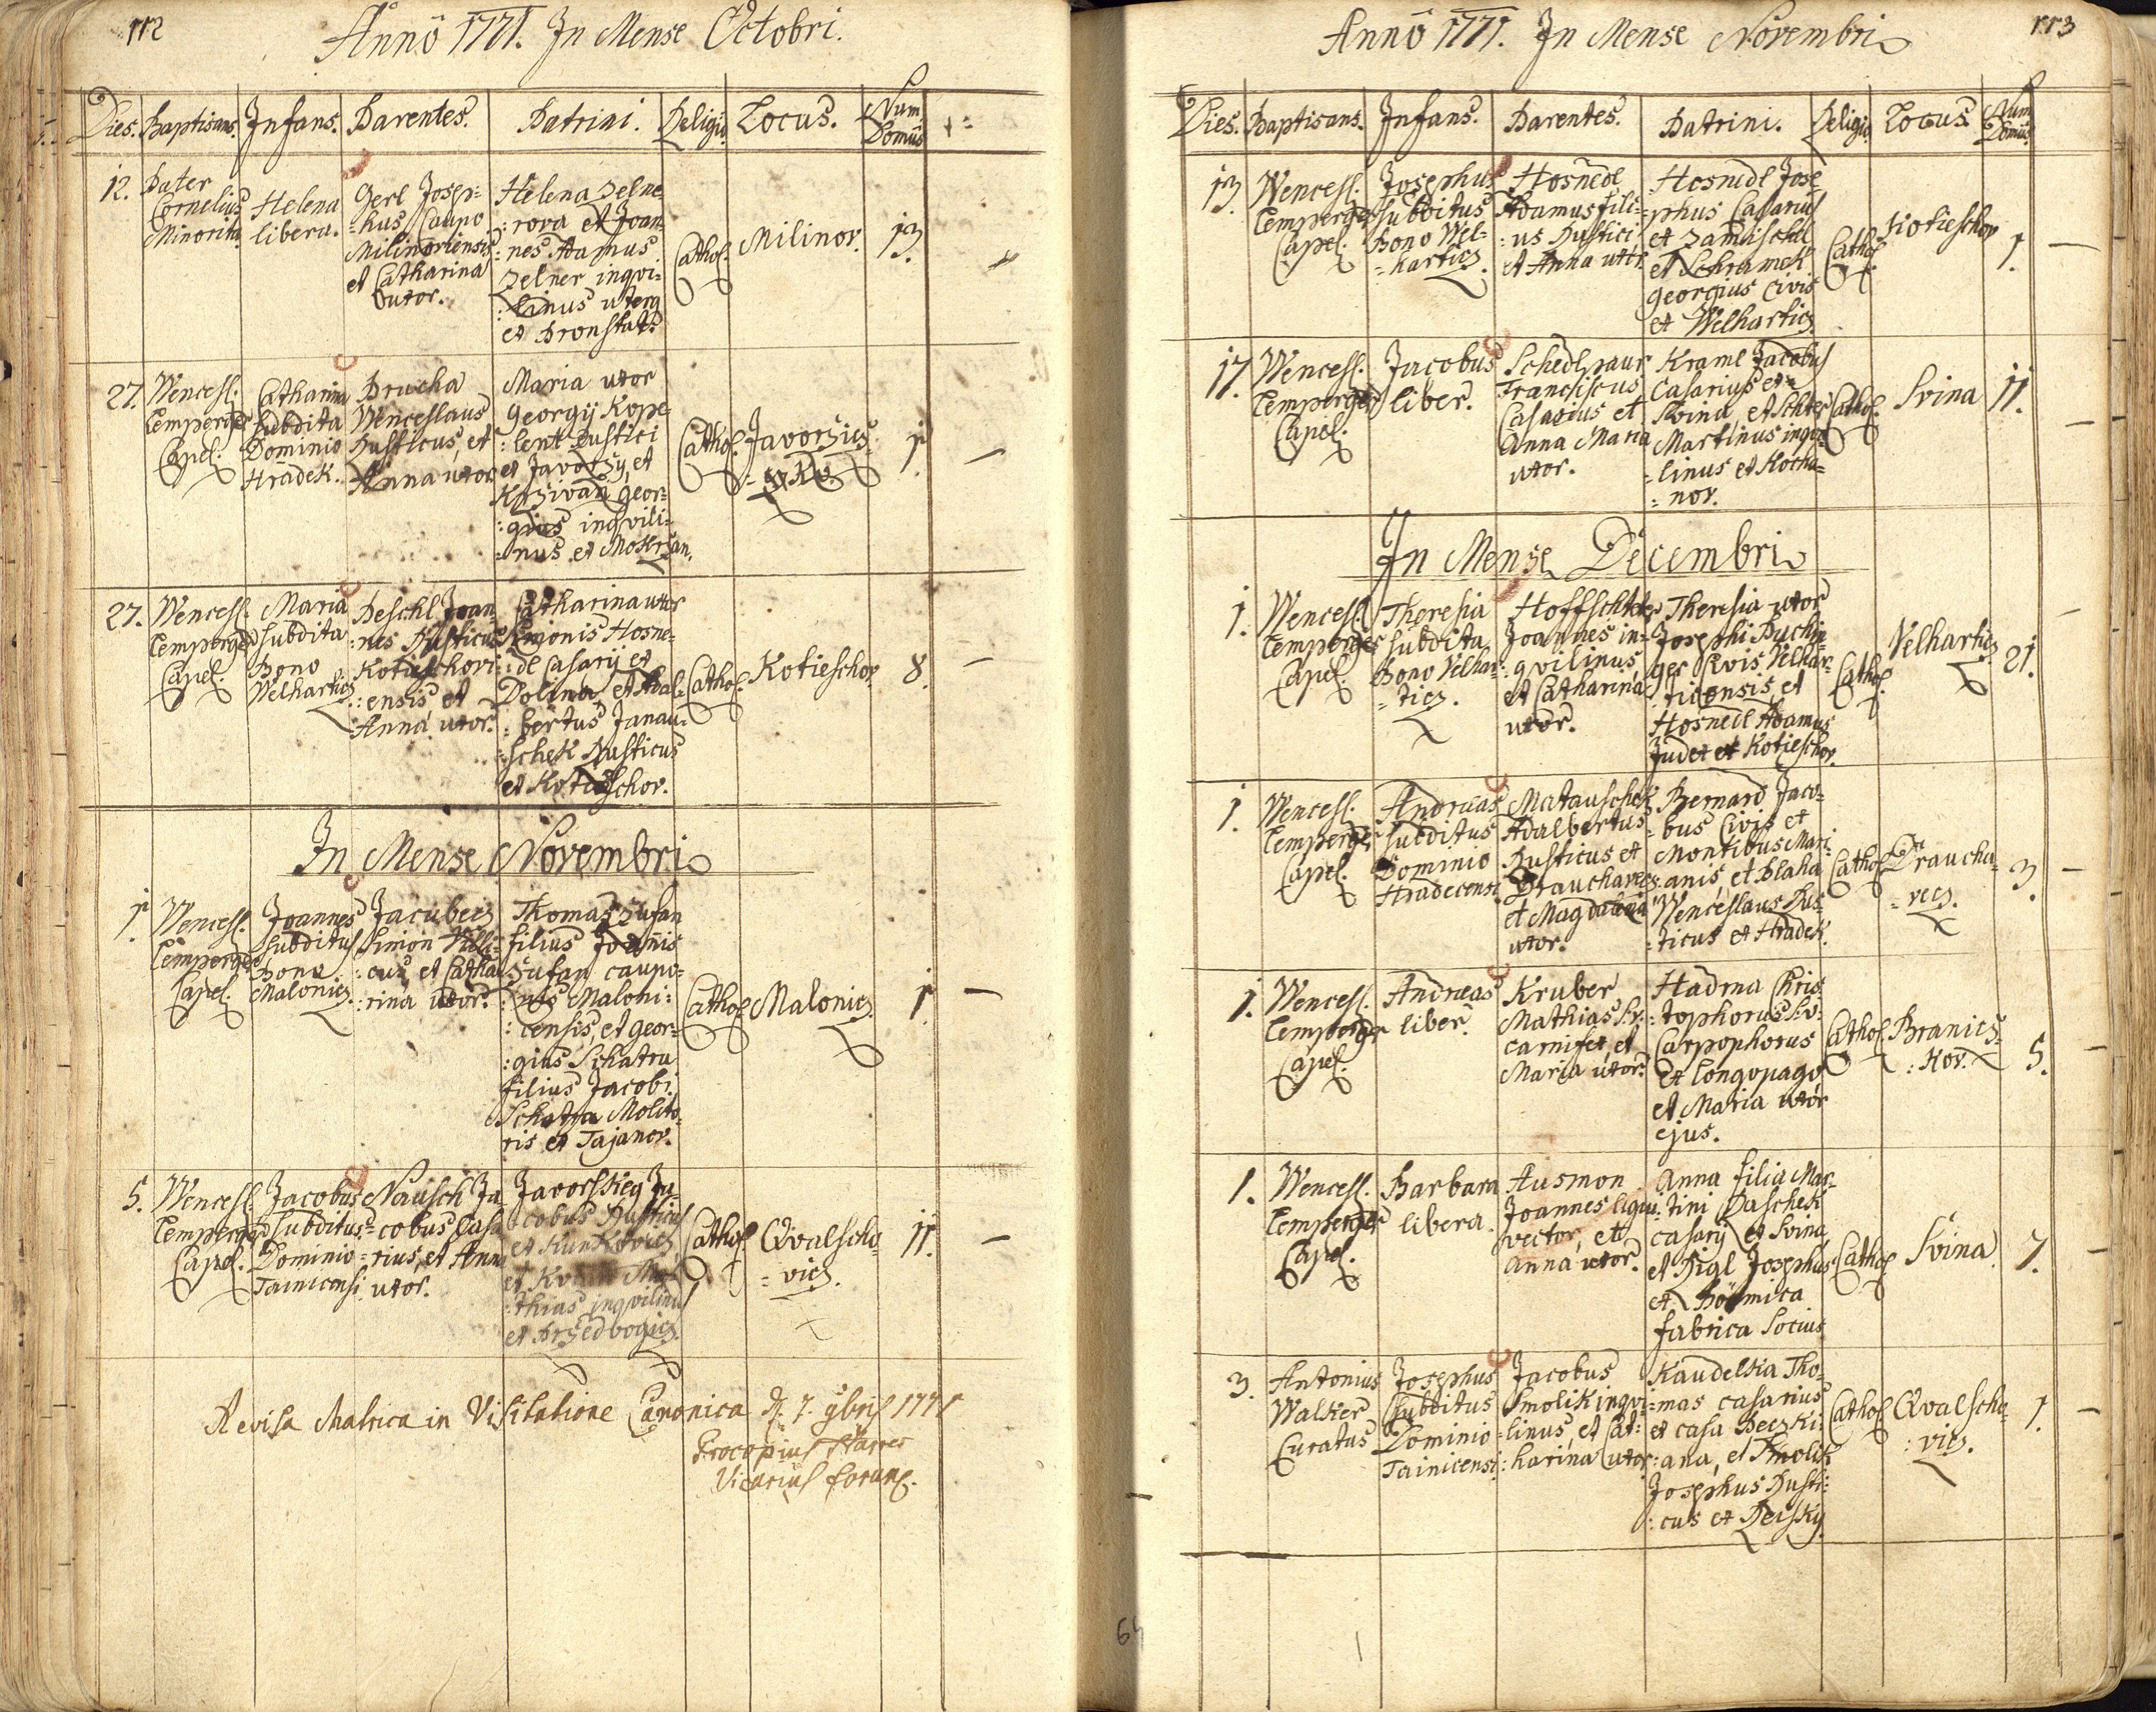 112
Anno 1771. In Mense Octobri.
Dies. Baptisans. Infans. Parentes. Patrini. Religio. Locus. Num. Domus
12. Pater Cornelius Minorita
Helena libera.
Gerl Josep=
=hus Caupo
Milinoviensis
et Catharina
Uxor.
Helena Zelne=
:rova et Joan=
:nes Adamus
Zelner inqvi=
:linus uterq
et Pronstat.
Cathol. Milinov. 13.
27. Wencesl.
Lemperger
Capel.
Catharina
subdita
Dominio
Hradek.
Prucha
Wenceslaus
Rusticus, et
Anna uxor
Maria uxor
Georgij Kope=
:lent Rustici
et Javorzy, et
Krziwan Geor=
:gius inqvili=
=nus et Mokrzan.
Cathol. Javorzics=
1.
27. Wencesl.
Lemperger
Capel.
Maria
subdita
Bono
Welhartics
Peschl Joan=
:nes Rusticus
Kotieschovi=
:ensis et
Anna uxor.
Catharina uxor
Simonis Hosne=
:dl Casarij et
Dolina, et Adal=
:bertus Janau=
:schek Rusticus
et Kotieschov.
Cathol. Kotieschov. 8.
In Mense Novembri
1. Wencesl.
Lemperger
Capel.
Joannes
subditus
Bono
Malonics.
Jacubecz
Simon
:cus, et Catha
:rina uxor.
Thomas Zufan
filius Joannis
Zufan caupo=
:nis Maloni=
:censis, et Geor=
:gius Schatra
filius Jacobi
Schatra Molito=
ris et Tajanov.
Cathol. Malonics. 1.
5. Wencesl.
Lemperger
Capel.
Jacobus
subditus
Dominio
Tainicensi
Nausch Ja
=cobus Casa
=rius, et Anna
uxor.
Javorskieg Ja=
:cobus Rusticus
et Kunkovics,
et
:thias inqvilinus
et Przedvogics.
Cathol. Qvalscho=
=vics. 11.
Revisa Matrica in Visitatione Canonica d. 7. 9bris 1771
Procopius
Vicarius foran.
113
Anno 1771. In Mense Novembri
Dies. Baptisans. Infans. Parentes. Patrini. Religio. Locus. Num. Domus.
13. Wencesl.
Lemperger
Capel.
Josephus
subditus
Bono Wel=
=hartics.
Hosnedl
Adamus fili=
:us Rustici
et Anna uxor.
Hosnedl Jose=
phus Casarius
et Zamlischl
et Schramek
Georgius Civis
et Welhartics.
Cathol. Kotieschov 1.
17. Wencesl.
Lemperger
Capel.
Jacobus
liber.
Schedlpaur
Francsiscus
Casarius et
Anna Maria
uxor.
Kraml Jacobus
Casarius et
Svina, et Schter
Martinus inqvi=
:linus et Kocha=
=nov.
Cathol. Svina 11.
In Mense Decembri
1. Wencesl.
Lemperger
Capel.
Theresia
subdita
Bono Velhar=
=tics.
Hoffschlter
Joannes in=
:qvilinus,
et Catharina
uxor.
Theresia uxor
Josephi Puchin
ger Civis Velhar=
ticensis, et
Hosnedl Adamus
Judex et Kotieschov.
Cathol. Velhartics 21.
1. Wencesl.
Lemperger
Capel.
Andreas
subditus
Dominio
Hradecensi
Matauschek
Adalbertus
Rusticus et
Drauchavecs
et Magdalena
uxor.
Bernard Jaco=
=bus Civis et
Montibus Mari=
:anis, et Blaha
Wenceslaus Rus=
:ticus et Hradek.
Cathol. Draucha=
=vecs. 3.
1. Wencesl.
Lemperger
Capel.
Andreas
liber.
Kruber
Mathias Sv.
Carnifex, et
Maria uxor.
Hadma Chris
:tophorus Sv:
Carpophorus
et Longopago
et Maria uxor
ejus.
Cathol. Branics=
:kov. 5.
1. Wencesl.
Lemperger
Capel.
Barbara
libera.
Ausmon
Joannes ligni=
vector, et
Anna uxor.
Anna filia Mar=
:tini Paschek
casarij et Svina,
et Pigl Josephus
et Böhmica
fabrica Socius
Cathol. Svina. 7.
3. Antonius
Walter
Curatus
Josephus
subditus
Dominio
Tainicensi
Jacobus
Smolik inqvi=
=linus, et Cat:
:harina uxor
Kaudelkia Tho=
:mas casarius
et casa Peczki:
:ana, et Smolik
Josephus Rusti:
:cus et Petsky.
Cathol. Qvalscho=
:vics. 1.